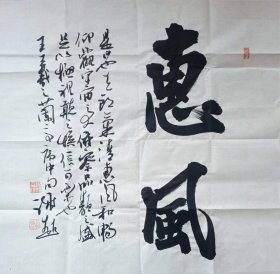 惠風
是日也天朗氣清惠風和暢
仰觀宇宙之大俯察品類之盛
足以極視聽之娛信可樂也
王羲之蘭亭序中句